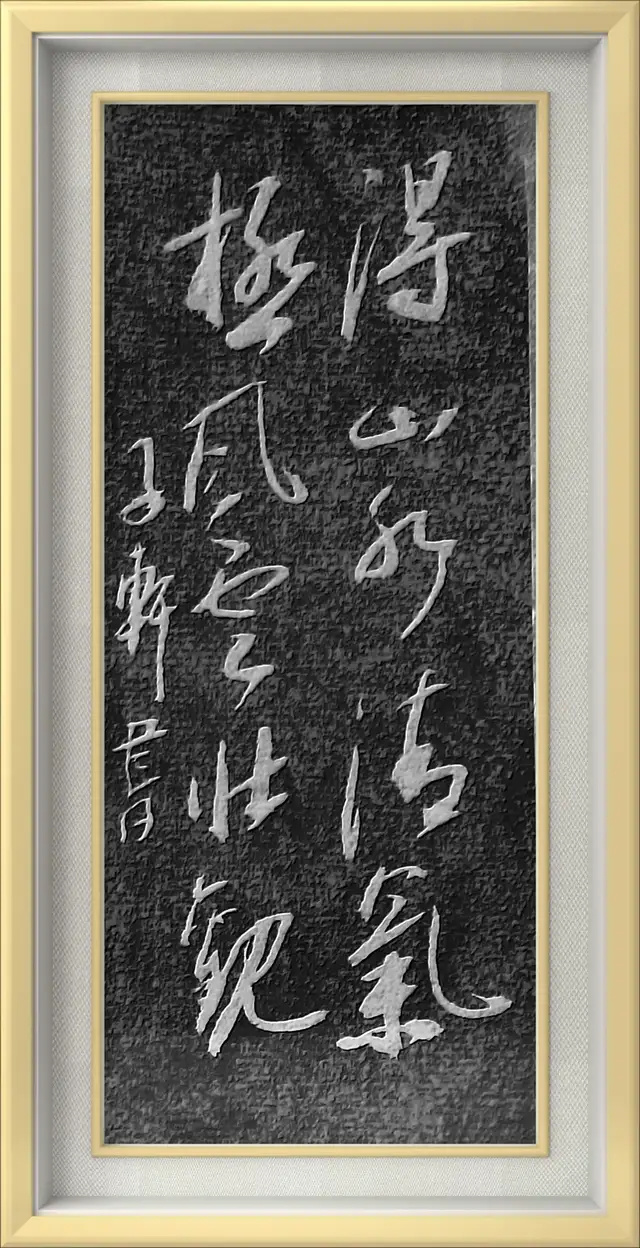 得山水清氣
極風雲壯觀
子軒書